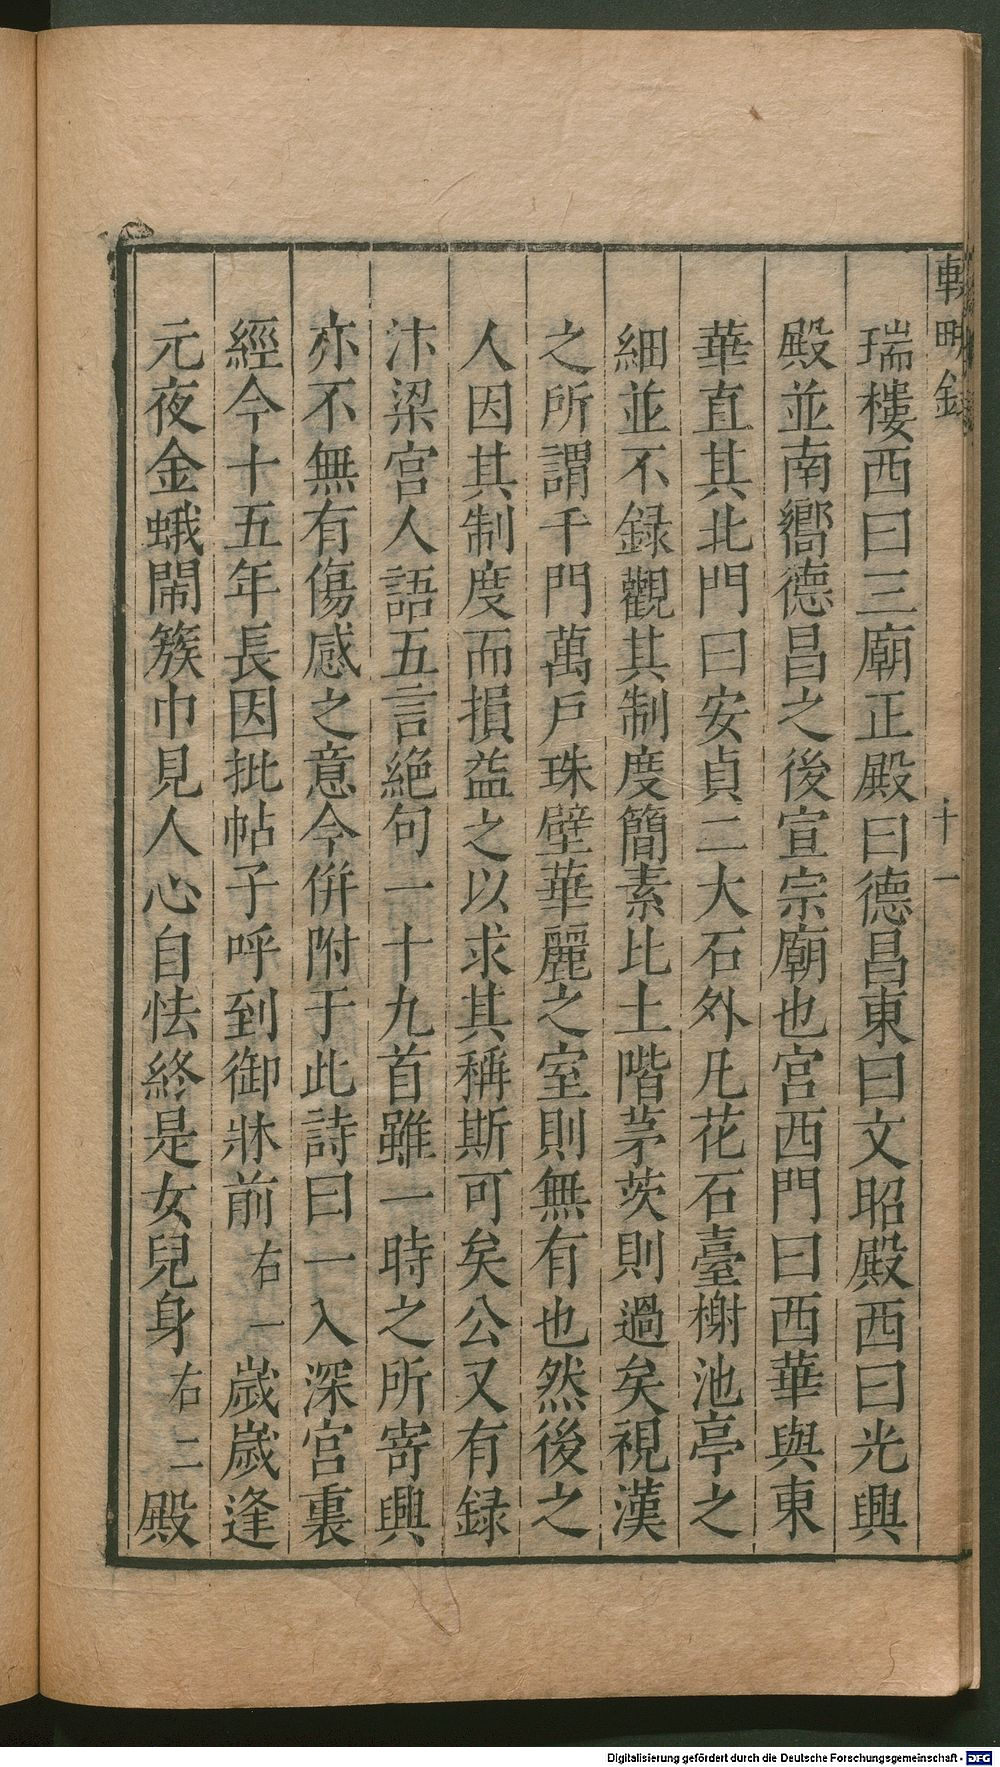 輟畊錄
十一
瑞樓西曰三廟正殿曰德昌東曰文昭殿西曰光興
殿並南嚮德昌之後宣宗廟也宮西門曰西華與東
華直其北門曰安貞二大石外凡花石臺榭池亭之
細並不録觀其制度簡素比土階茅茨則過矣視漢
之所謂千門萬戶珠壁華麗之室則無有也然後之
人因其制度而損益之以求其稱斯可矣公又有録
汴梁宮人語五言絕句一十九首雖一時之所寄興
亦不無有傷感之意今併附于此詩曰一入深宮裏
經今十五年長因批帖子呼到御牀前右一歲歲逢
元夜金蛾鬧簇巾見人心自怯終是女兒身右二殿
Digitalisierung gefördert durch die Deutsche Forschungsgemeinschaft - DFG